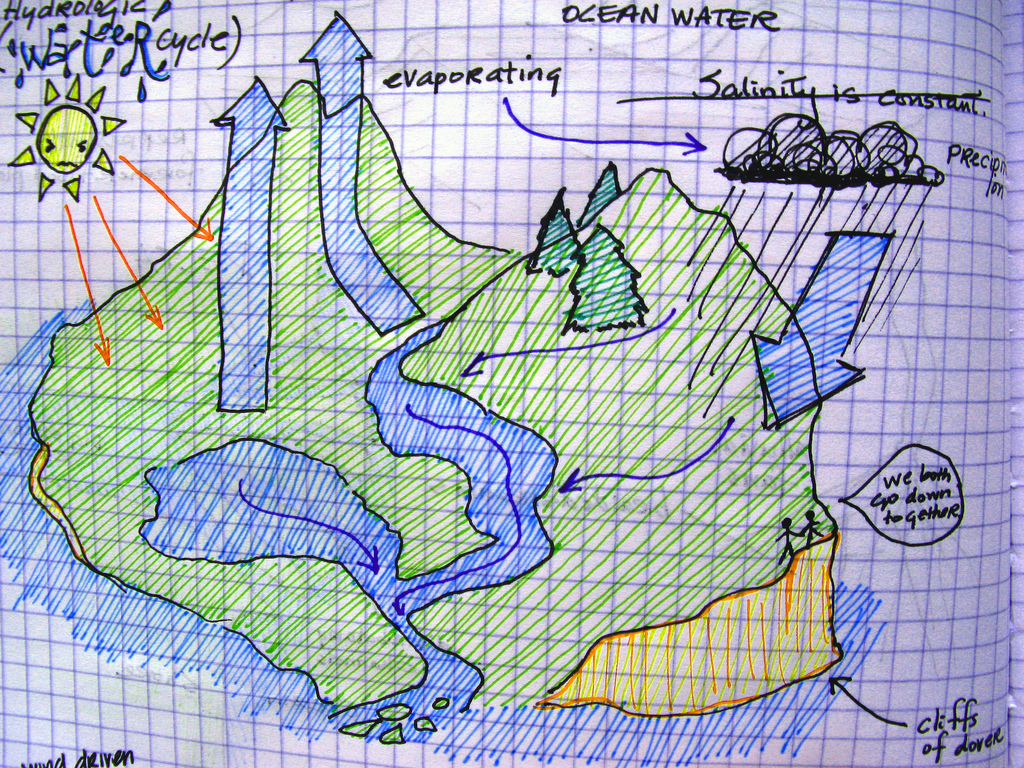 Hydrologic
(Water cycle)
OCEAN WATER
evaporating
Salinity is constant.
we both
go down
together
cliffs
of dover
wind driven